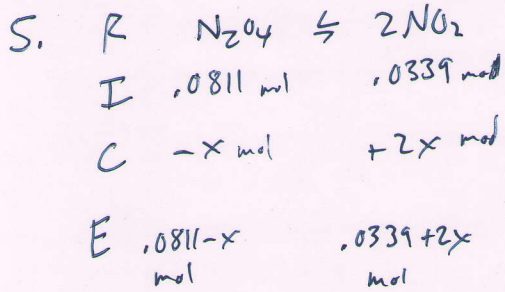 5. R N₂O₄ ⇆ 2NO₂
I .0811 mol .0339 mol
C -x mol +2x mol
E .0811-x .0339+2x
mol mol